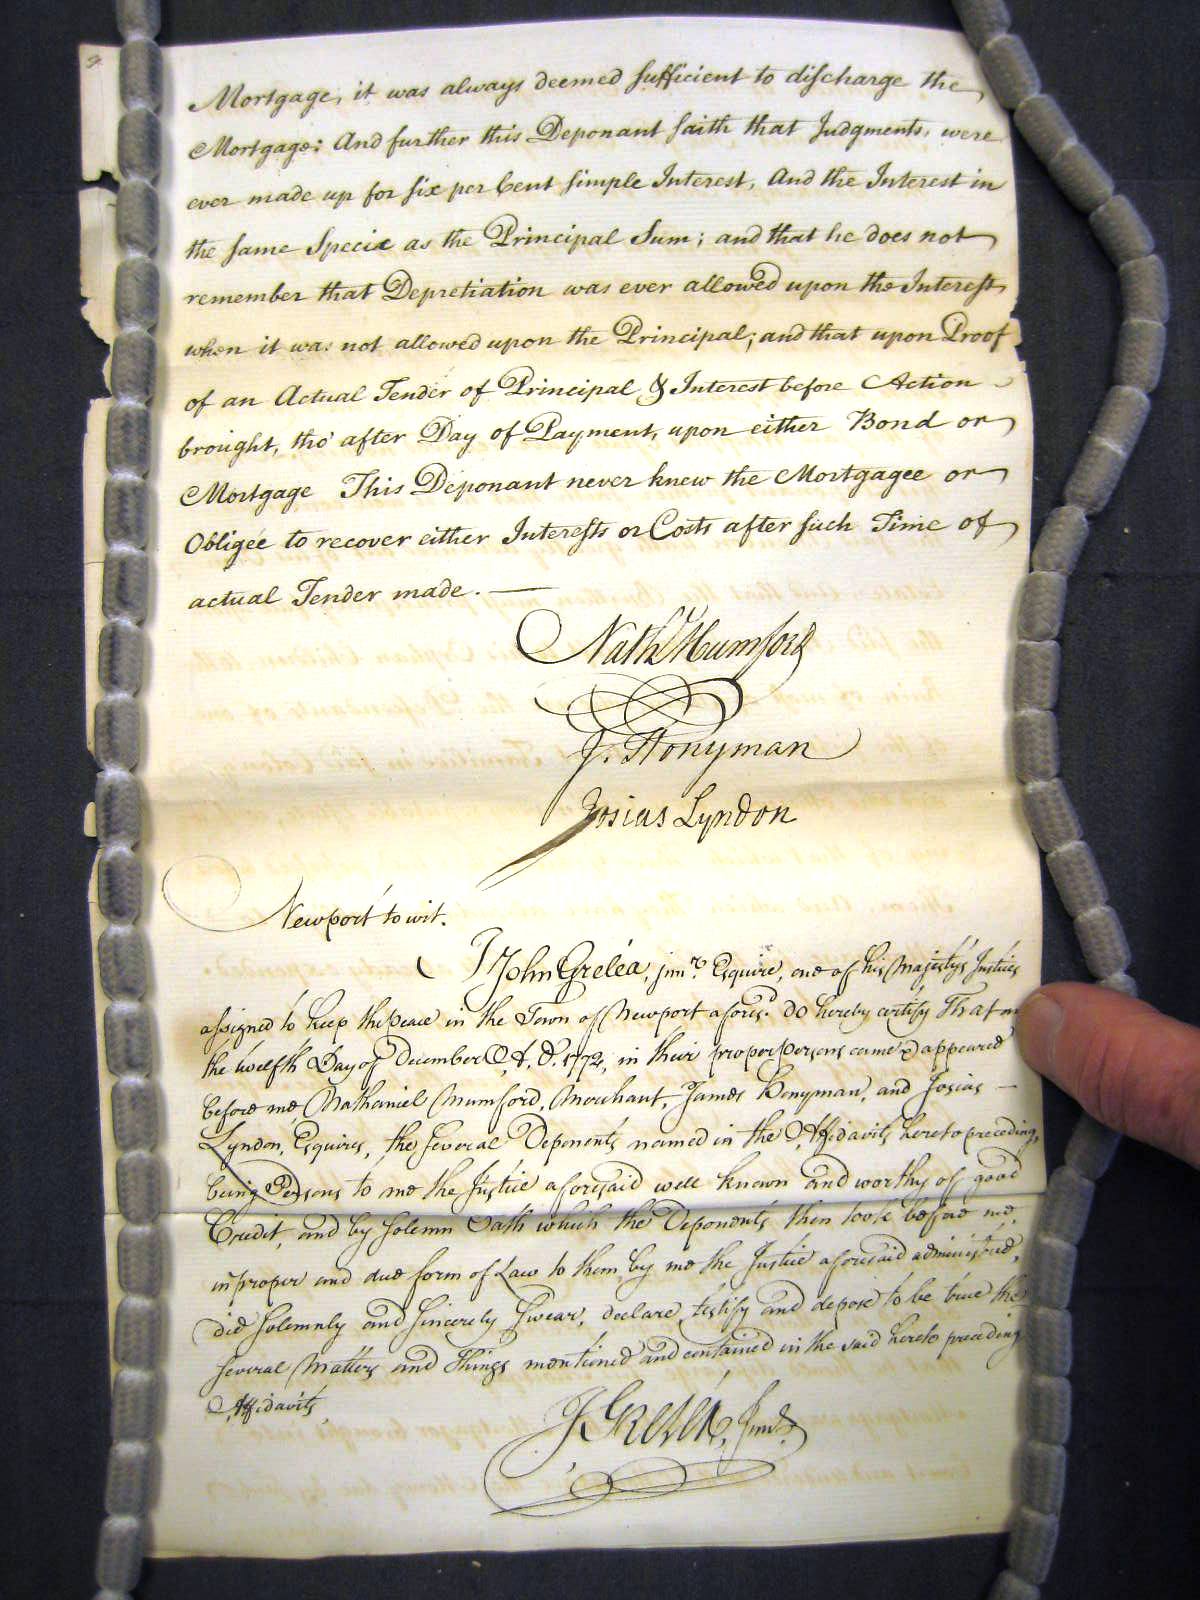 Mortgage, it was always deemed sufficient to discharge the
Mortgage: And further this Deponant saith that Judgments, were
ever made up for six per Cent simple Interest, And the Interest in
the same Specie as the Principal Sum; and that he does not
remember that Depretiation was ever allowed upon the Interest
when it was not allowed upon the Principal; and that upon Proof
of an Actual Tender of Principal & Interest before Action
brought, tho' after Day of Payment, upon either Bond or
Mortgage This Deponant never knew the Mortgagee or
Obligee to recover either Interests or Costs after such Time of
actual Tender made. —
Nathl Mumford
J. Honyman
Josias Lyndon
Newport to wit.
I John Grelea, junr. Esquire, one of his Majesty's Justices
assigned to keep the Peace in the Town of Newport aforesd. do hereby certify That on
the twelfth Day of December A. D. 1772, in their proper persons came & appeared
before me, Nathaniel Mumford, Merchant, James Honyman, and Josias —
Lyndon, Esquires, the several Deponents named in the Affidavits hereto preceding,
being Persons to me the Justice aforesaid well known and worthy of good
Credit, and by solemn Oath which the Deponents then took before me,
in proper and due form of Law to them by me the Justice aforesaid administred,
did solemnly and sincerely swear, declare, testify and depose to be true the
several Matters and Things mentioned and contained in the said hereto preceding
Affidavits
J Grelea, Junr.